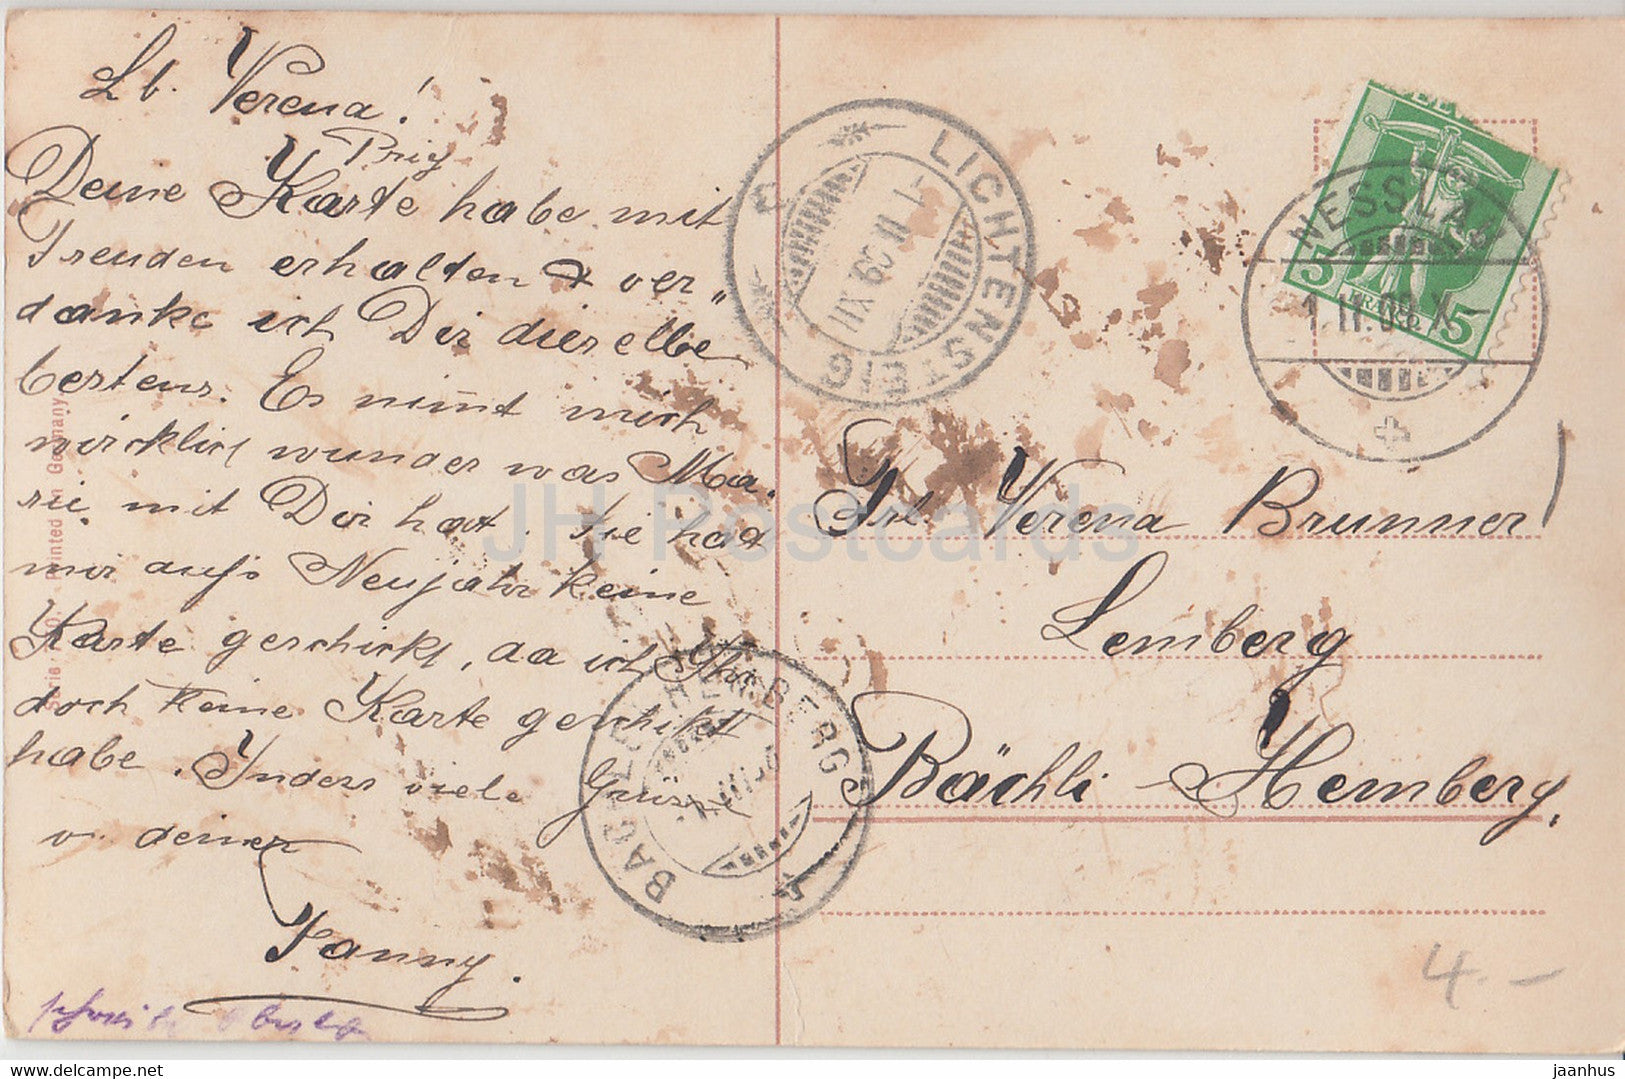 Lb. Verena!
Prig
Deine Karte habe mit
Freuden erhalten & ver„
danke ich Dir dieselbe
bestens. Es nimmt mich
wircklich wunder was Ma„
rie mit Dir hat. Sie hat
mir aufs Neujahr keine
Karte geschickt, da ich Ihr
doch keine Karte geschikt
habe. Inders viele Grüsse
v. deiner
Fanny.
Serie Printed in Germany
LICHTENSTEIG
1 II 09 XII
NESSLAU
1.II.09.X-
FRANCO
5 5
BÄCHLI (HEMBERG)
Frl. Verena Brunner
Lemberg
Bächli-Hemberg.
4.-
JH Postcards
jaanhus